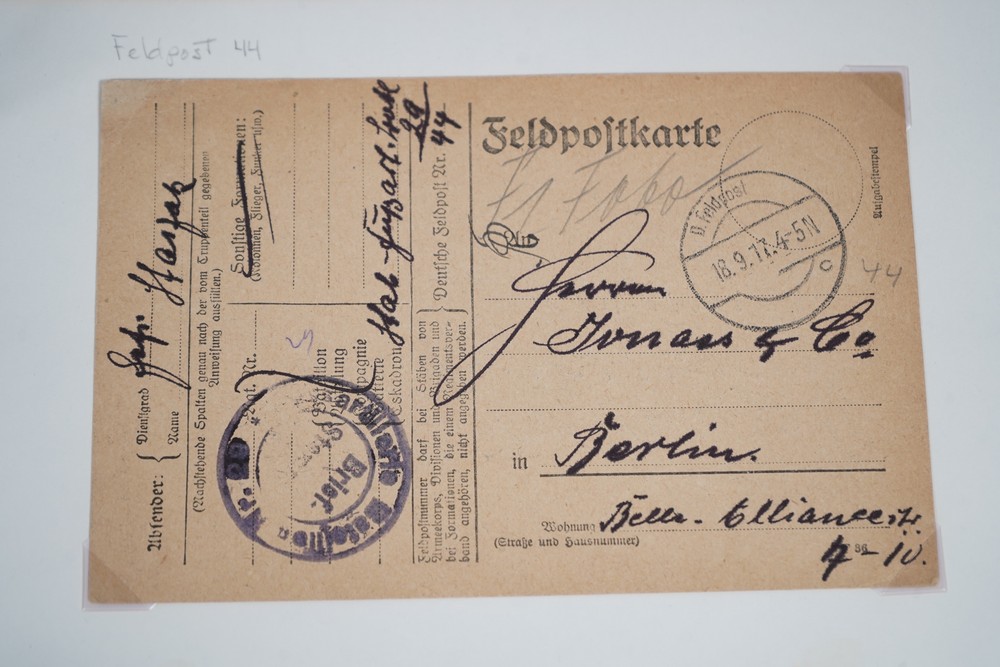 Feldpost 44
Feldpostkarte
Ausgabestempel
D. Feldpost
18.9.17. 4-5N
c
44
An
Herrn
Jonass & Co
in Berlin.
Wohnung Belle-Alliancestr.
(Straße und Hausnummer)
7-10.
Absender:
Dienstgrad
Name
(Nachstehende Spalten genau nach der vom Truppenteil gegebenen
Anweisung ausfüllen.)
Sonstige Formationen:
(Kolonnen, Flieger, Funker usw.)
Bataillon
Abteilung
Kompagnie
Batterie
Eskadron
Stab Fußart. Batl
29
Deutsche Feldpost Nr. 44
Feldpostnummer darf bei Stäben von
Armeekorps, Divisionen und Brigaden und
bei Formationen, die einem Regimentsver-
band angehören, nicht angegeben werden.
Brief-
Nr. 29